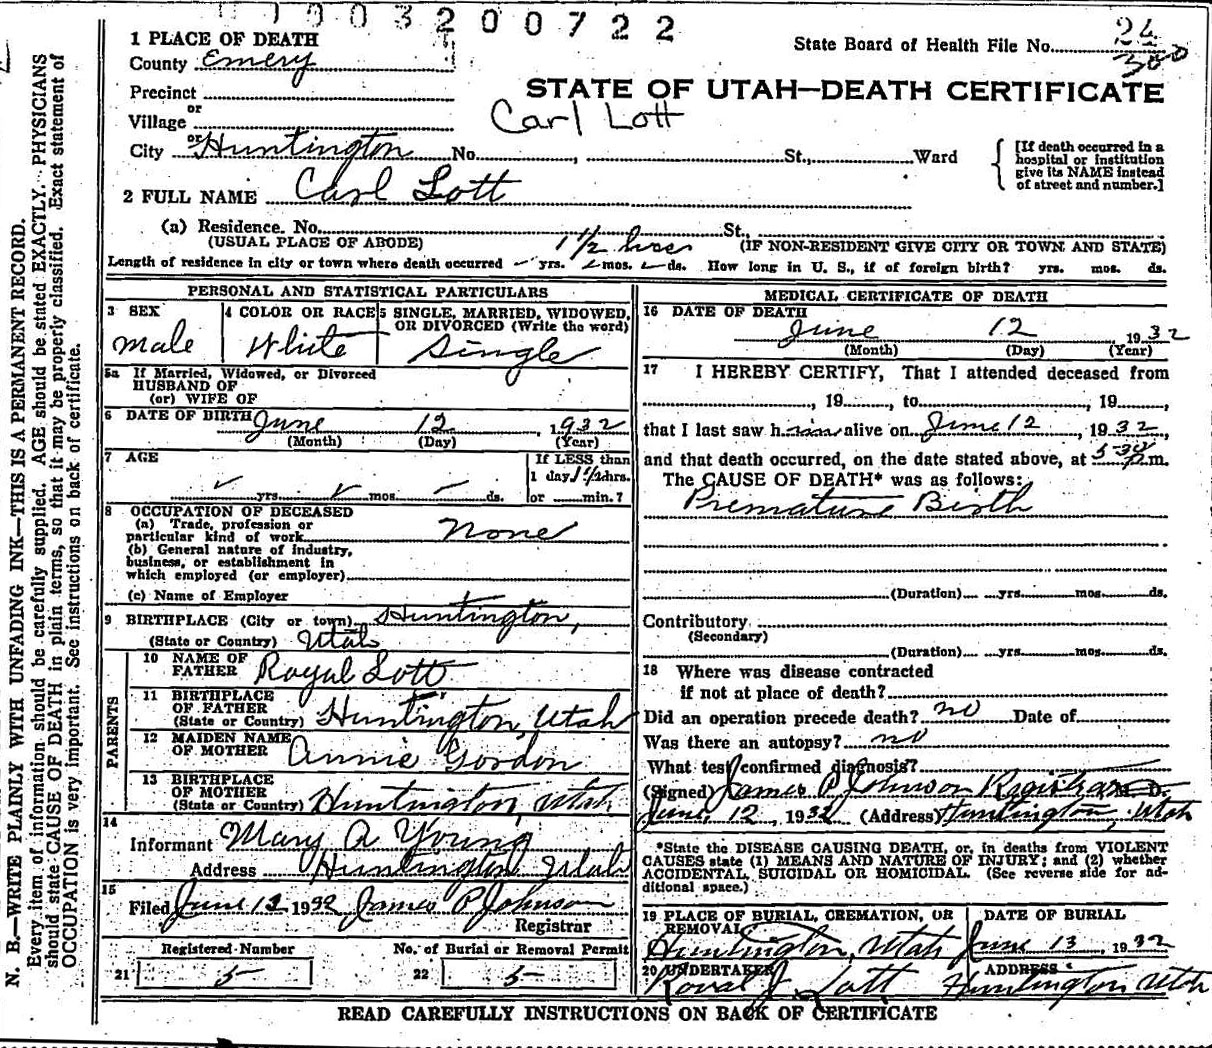 003200722
1 PLACE OF DEATH
County Emery
State Board of Health File No. 24
380
Precinct
STATE OF UTAH—DEATH CERTIFICATE
or
Village
Carl Lott
or
City Huntington No. , St., Ward
[If death occurred in a hospital or institution give its NAME instead of street and number.]
2 FULL NAME Carl Lott
(a) Residence. No. St.,
(USUAL PLACE OF ABODE) 1 1/2 hrs (IF NON-RESIDENT GIVE CITY OR TOWN AND STATE)
Length of residence in city or town where death occurred - yrs. - mos. - ds. How long in U. S., if of foreign birth? yrs. mos. ds.
PERSONAL AND STATISTICAL PARTICULARS
3 SEX
Male
4 COLOR OR RACE
White
5 SINGLE, MARRIED, WIDOWED, OR DIVORCED (Write the word)
Single
5a If Married, Widowed, or Divorced
HUSBAND OF
(or) WIFE OF
6 DATE OF BIRTH June 12, 1932
(Month) (Day) (Year)
7 AGE
yrs. mos. ds.
If LESS than
1 day, 1 1/2 hrs.
or min.?
8 OCCUPATION OF DECEASED
(a) Trade, profession or
particular kind of work None
(b) General nature of industry,
business, or establishment in
which employed (or employer)
(c) Name of Employer
9 BIRTHPLACE (City or town) Huntington,
(State or Country) Utah
PARENTS
10 NAME OF
FATHER Royal Lott
11 BIRTHPLACE
OF FATHER
(State or Country) Huntington, Utah
12 MAIDEN NAME
OF MOTHER Annie Gordon
13 BIRTHPLACE
OF MOTHER
(State or Country) Huntington, Utah
14
Informant Mary A Young
Address Huntington Utah
15
Filed June 12 1932 James P Johnson
Registrar
Registered Number
21 5
No. of Burial or Removal Permit
22 5
MEDICAL CERTIFICATE OF DEATH
16 DATE OF DEATH
June 12 1932
(Month) (Day) (Year)
17 I HEREBY CERTIFY, That I attended deceased from
, 19 , to , 19 ,
that I last saw him alive on June 12, 1932,
and that death occurred, on the date stated above, at 5-30 p.m.
The CAUSE OF DEATH* was as follows:
Premature Birth
(Duration) yrs. mos. ds.
Contributory
(Secondary)
(Duration) yrs. mos. ds.
18 Where was disease contracted
if not at place of death?
Did an operation precede death? no Date of
Was there an autopsy? no
What test confirmed diagnosis?
(Signed) James P Johnson Registrar M. D.
June 12, 1932 (Address) Huntington, Utah
*State the DISEASE CAUSING DEATH, or, in deaths from VIOLENT
CAUSES state (1) MEANS AND NATURE OF INJURY; and (2) whether
ACCIDENTAL, SUICIDAL OR HOMICIDAL. (See reverse side for ad-
ditional space.)
19 PLACE OF BURIAL, CREMATION, OR
REMOVAL
Huntington, Utah
DATE OF BURIAL
June 13, 1932
20 UNDERTAKER
Royal J Lott
ADDRESS
Huntington Utah
READ CAREFULLY INSTRUCTIONS ON BACK OF CERTIFICATE
N. B.—WRITE PLAINLY WITH UNFADING INK—THIS IS A PERMANENT RECORD.
Every item of information should be carefully supplied. AGE should be stated EXACTLY. PHYSICIANS
should state CAUSE OF DEATH in plain terms, so that it may be properly classified. Exact statement of
OCCUPATION is very important. See instructions on back of certificate.